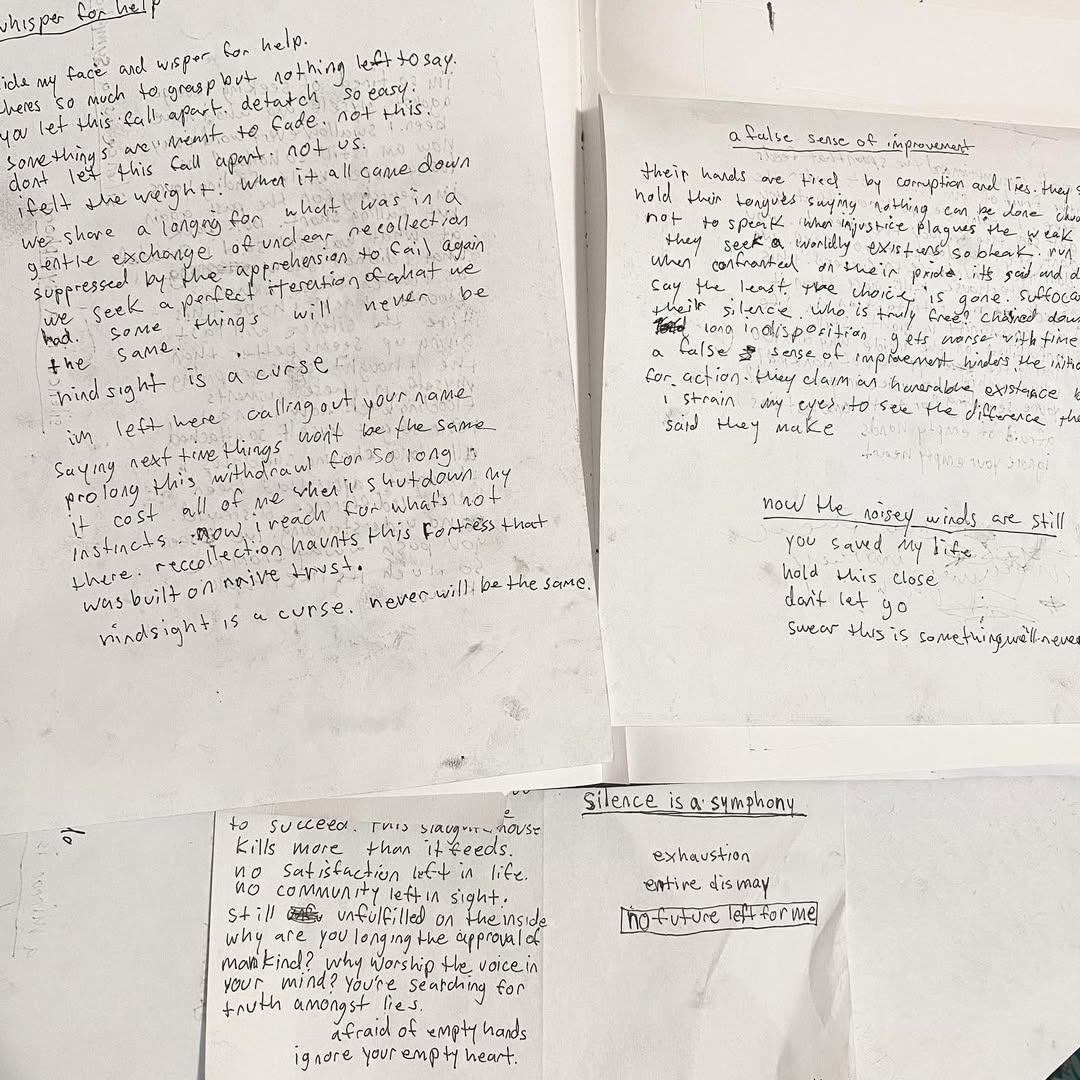 whisper for help
ide my face and wisper for help.
heres so much to grasp but nothing left to say.
you let this fall apart. detatch so easy.
somethings are ment to fade. not this.
dont let this fall apart not us.
ifelt the weight. When it all came down
we share a longing for what was in a
gentle exchange of unclear recollection
suppressed by the apprehension to fail again
we seek a perfect iteration of what we
had. some things will never be
the same.
hindsight is a curse
im left here calling out your name
saying next time things won't be the same
prolong this withdrawl for so long
it cost all of me when i shutdown my
instincts. now i reach for what's not
there. reccollection haunts this fortress that
was built on naive trust.
hindsight is a curse. never will be the same.
a false sense of improvement
their hands are tied by corruption and lies. they
hold their tongues saying nothing can be done
not to speak when injustice plagues the weak
they seek a worldly existens so bleak. run
when confronted on their pride. its said and d
say the least. the choice is gone. suffoca
their silence. who is truly free? chained dow
long indisposition gets worse with time
a false sense of improvement hinders the initia
for action. they claim an honerable existence b
i strain my eyes to see the difference the
said they make
now the noisey winds are still
you saved my life
hold this close
don't let go
swear this is something we'll never
to succeed. This slaughterhouse
kills more than it feeds.
no satisfaction left in life.
no community left in sight.
still unfulfilled on the inside
why are you longing the approval of
mankind? why worship the voice in
your mind? you're searching for
truth amongst lies.
afraid of empty hands
ignore your empty heart.
silence is a symphony
exhaustion
entire dismay
no future left for me